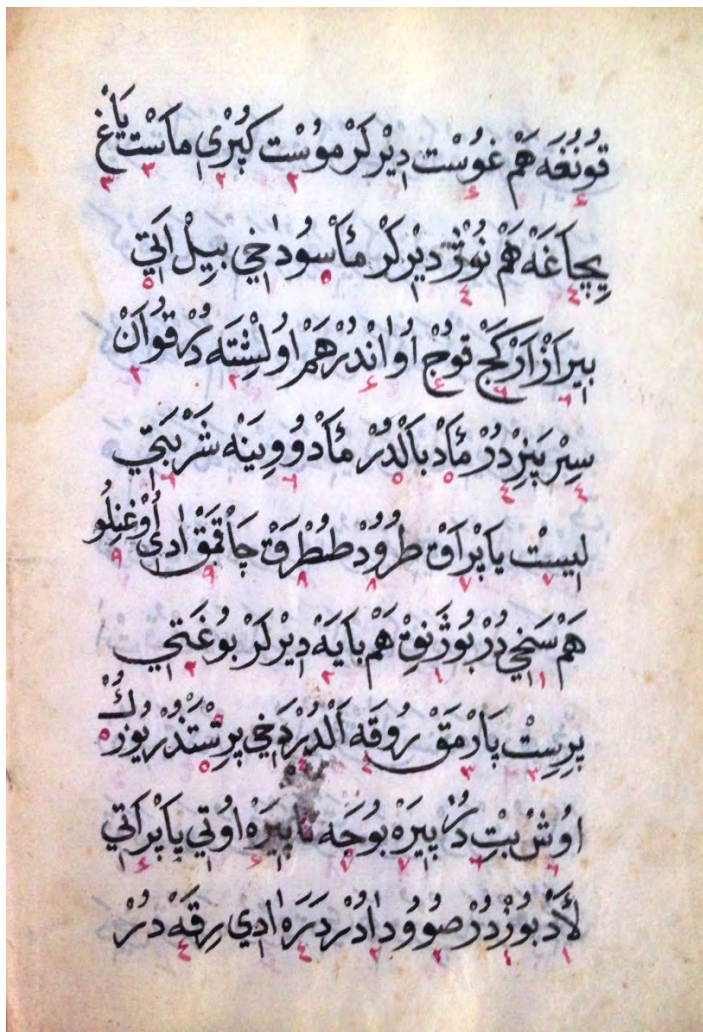 قُونُغَه هَمْ غوُسْت دِيْرلَرْ موُسْت كُپْرِی مَاسْت يَاغْ
بِچَاغَهْ هَمْ نُوْژْ دِيْرلَرْ مَأسُو دَاخِي بِيلْ اَتِي
بِيرَازْ اَرْكَجْ قوُچْ اُواٰنْدُرْ هَمْ اوُلِشْتَه دُرْ قوُاَنْ
سِيْر پَنِرْدُرْ مَأدْ بَالْدُرْ مَأدُوْوِينَه شَرْبَتِي
لِيسْت يَاپْرَاقْ طرُوُدْ طُطْرَقْ چَاقْمَقْ اٰدِي اُوْغنِلُو
هَمْ سَنِخِي دُرْ بُوْژ نِقْ هَمْ بَايَهْ دِيْرلَرْ بوُغَتِي
پرِسْت پَارْمَقْ رُوقَه اَلْدُرْ دَخِي پرِسْتَنْدُرْ يُوزُكْ
اوُشْ بِتْ دُرْ پِيرَهْ بوُحَه نَا پِيرَهْ اوُتِي پَاپْرَاتِي
لَأدْ بُوزْدُرْ صُووُدَادُرْ دَرَه اٰدِي رِقَهْ دُرْ